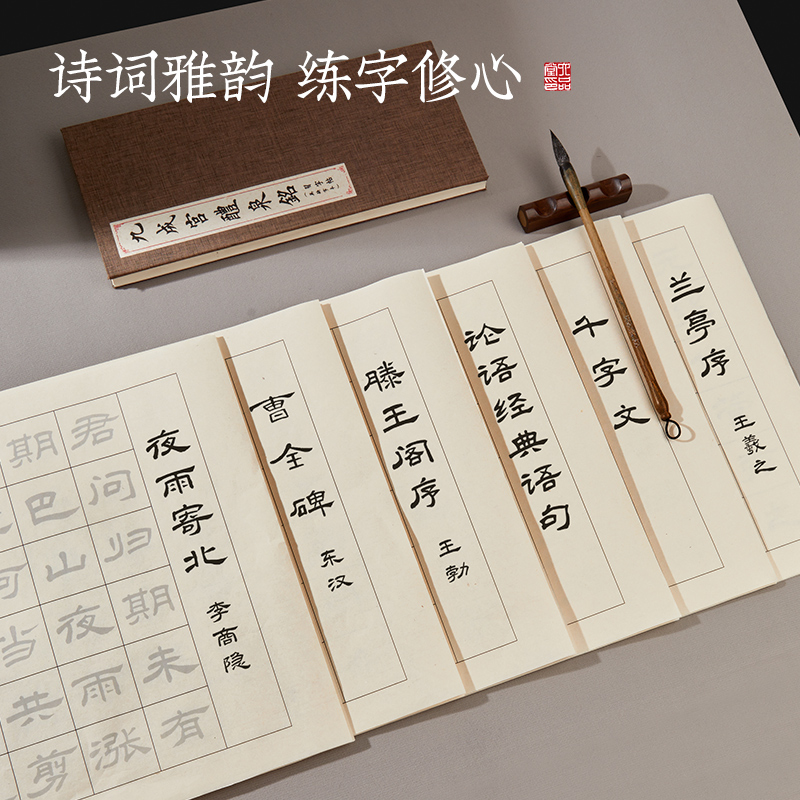 诗词雅韵 练字修心
九成宮醴泉銘
兰亭序
王羲之
千字文
论语经典语句
滕王阁序
王勃
曹全碑
东汉
夜雨寄北
李商隐
君问归期未有
期巴山夜雨涨
何当共剪